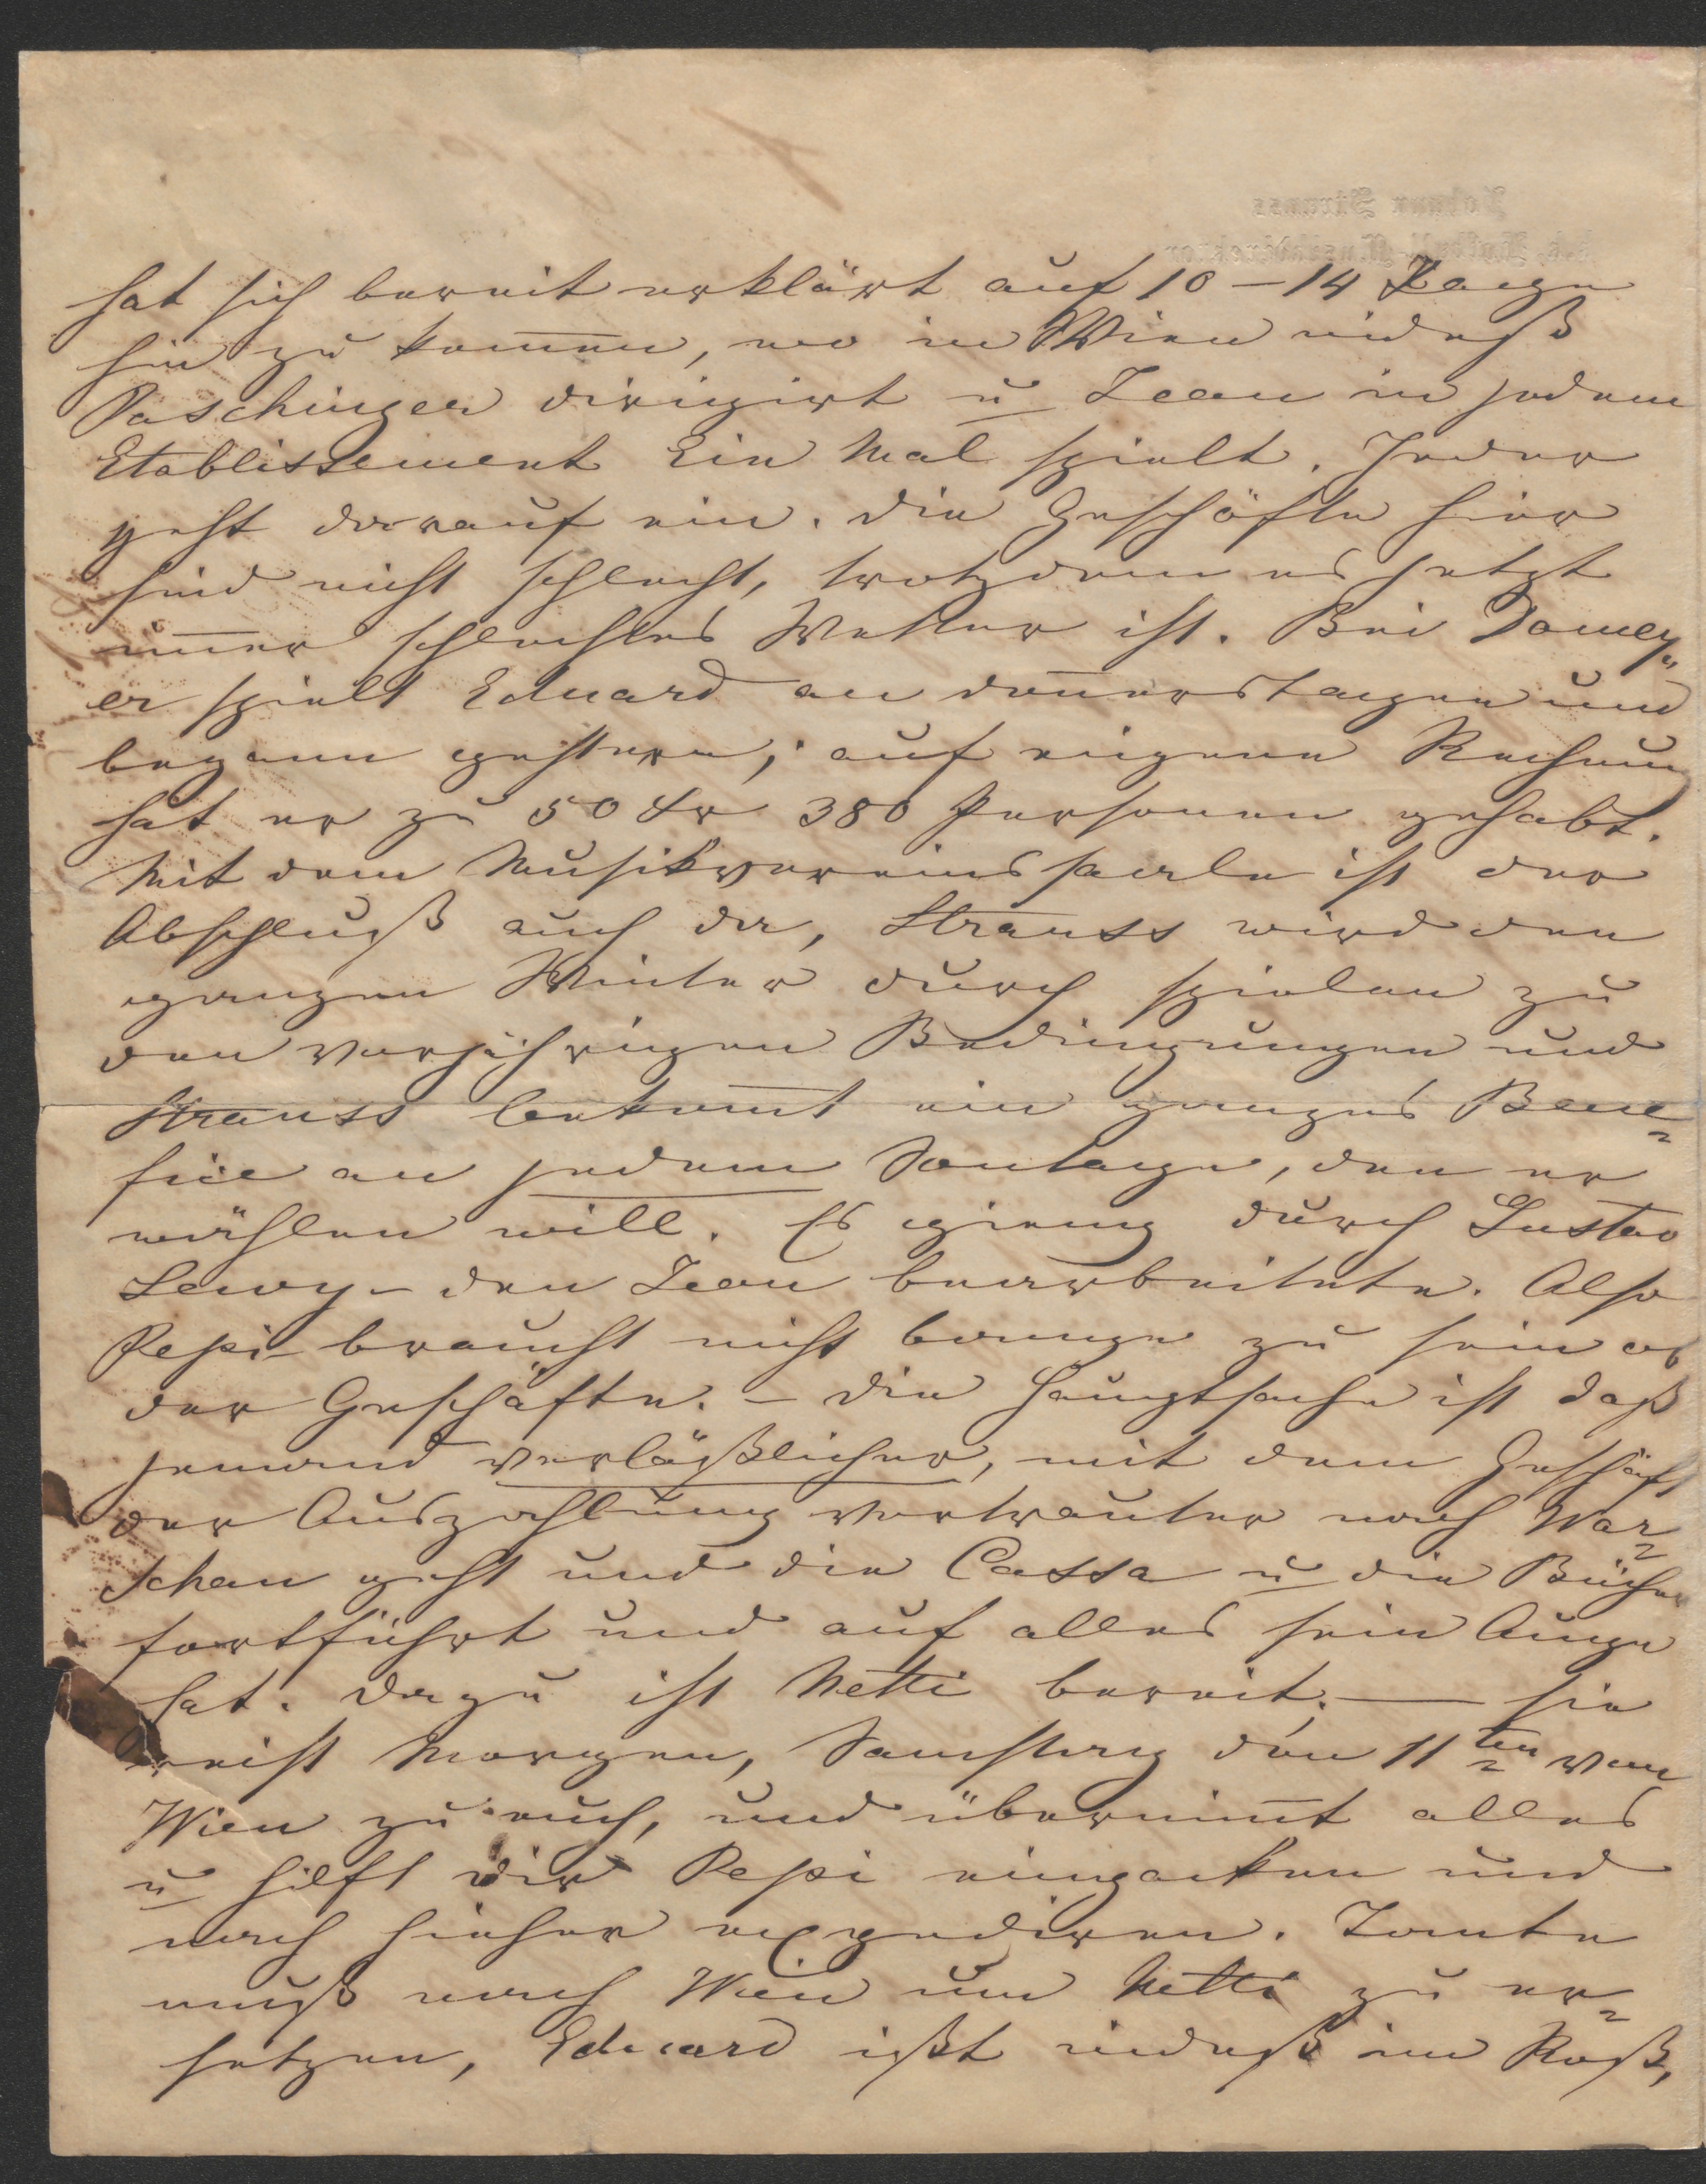 hat sich bereit erklärt auf 10 – 14 Tage
hin zu kom̅en, wo in Wien indeß
Paschinger dirigirt u Jean in jedem
Etablissement Ein Mal spielt. Jeder
geht darauf ein. Die Geschäfte hier
sind nicht schlecht, trotzdem es jetzt
im̅er schlechtes Wetter ist. Bei Domey„
er spielt Eduard an Don̅erstagen und
begann gestern; auf eigene Rechnung
hat er zu 50 Kr 380 Personen gehabt.
Mit dem Musikvereinssaale ist der
Abschluß auch da, Strauss wird den
ganzen Winter durch spielen zu
den vorjährigen Bedingungen und
Strauss bekom̅t ein ganzes Bene=
fice an jedem Sontage, den er
wählen will. Es gieng durch Gustav
Lewy – den Jean bearbeitete. Also
Pepi braucht nicht bange zu sein ob
der Geschäfte. – Die Hauptsache ist daß
jemand verläßlicher, mit dem Geschäft
der Auszahlung vertrauter nach War=
schau geht und die Cassa u die Bücher
fortführt und auf alles sein Auge
hat. Dazu ist Netti bereit, — sie
reist Morgen, Samstag den 11ten von
Wien zu euch, und übernim̅t alles
u hilft dir Pepi einpacken und
nach hieher expediren. Tante
muß nach Wien um Netti zu er=
setzen, Eduard ißt indeß im Roß,